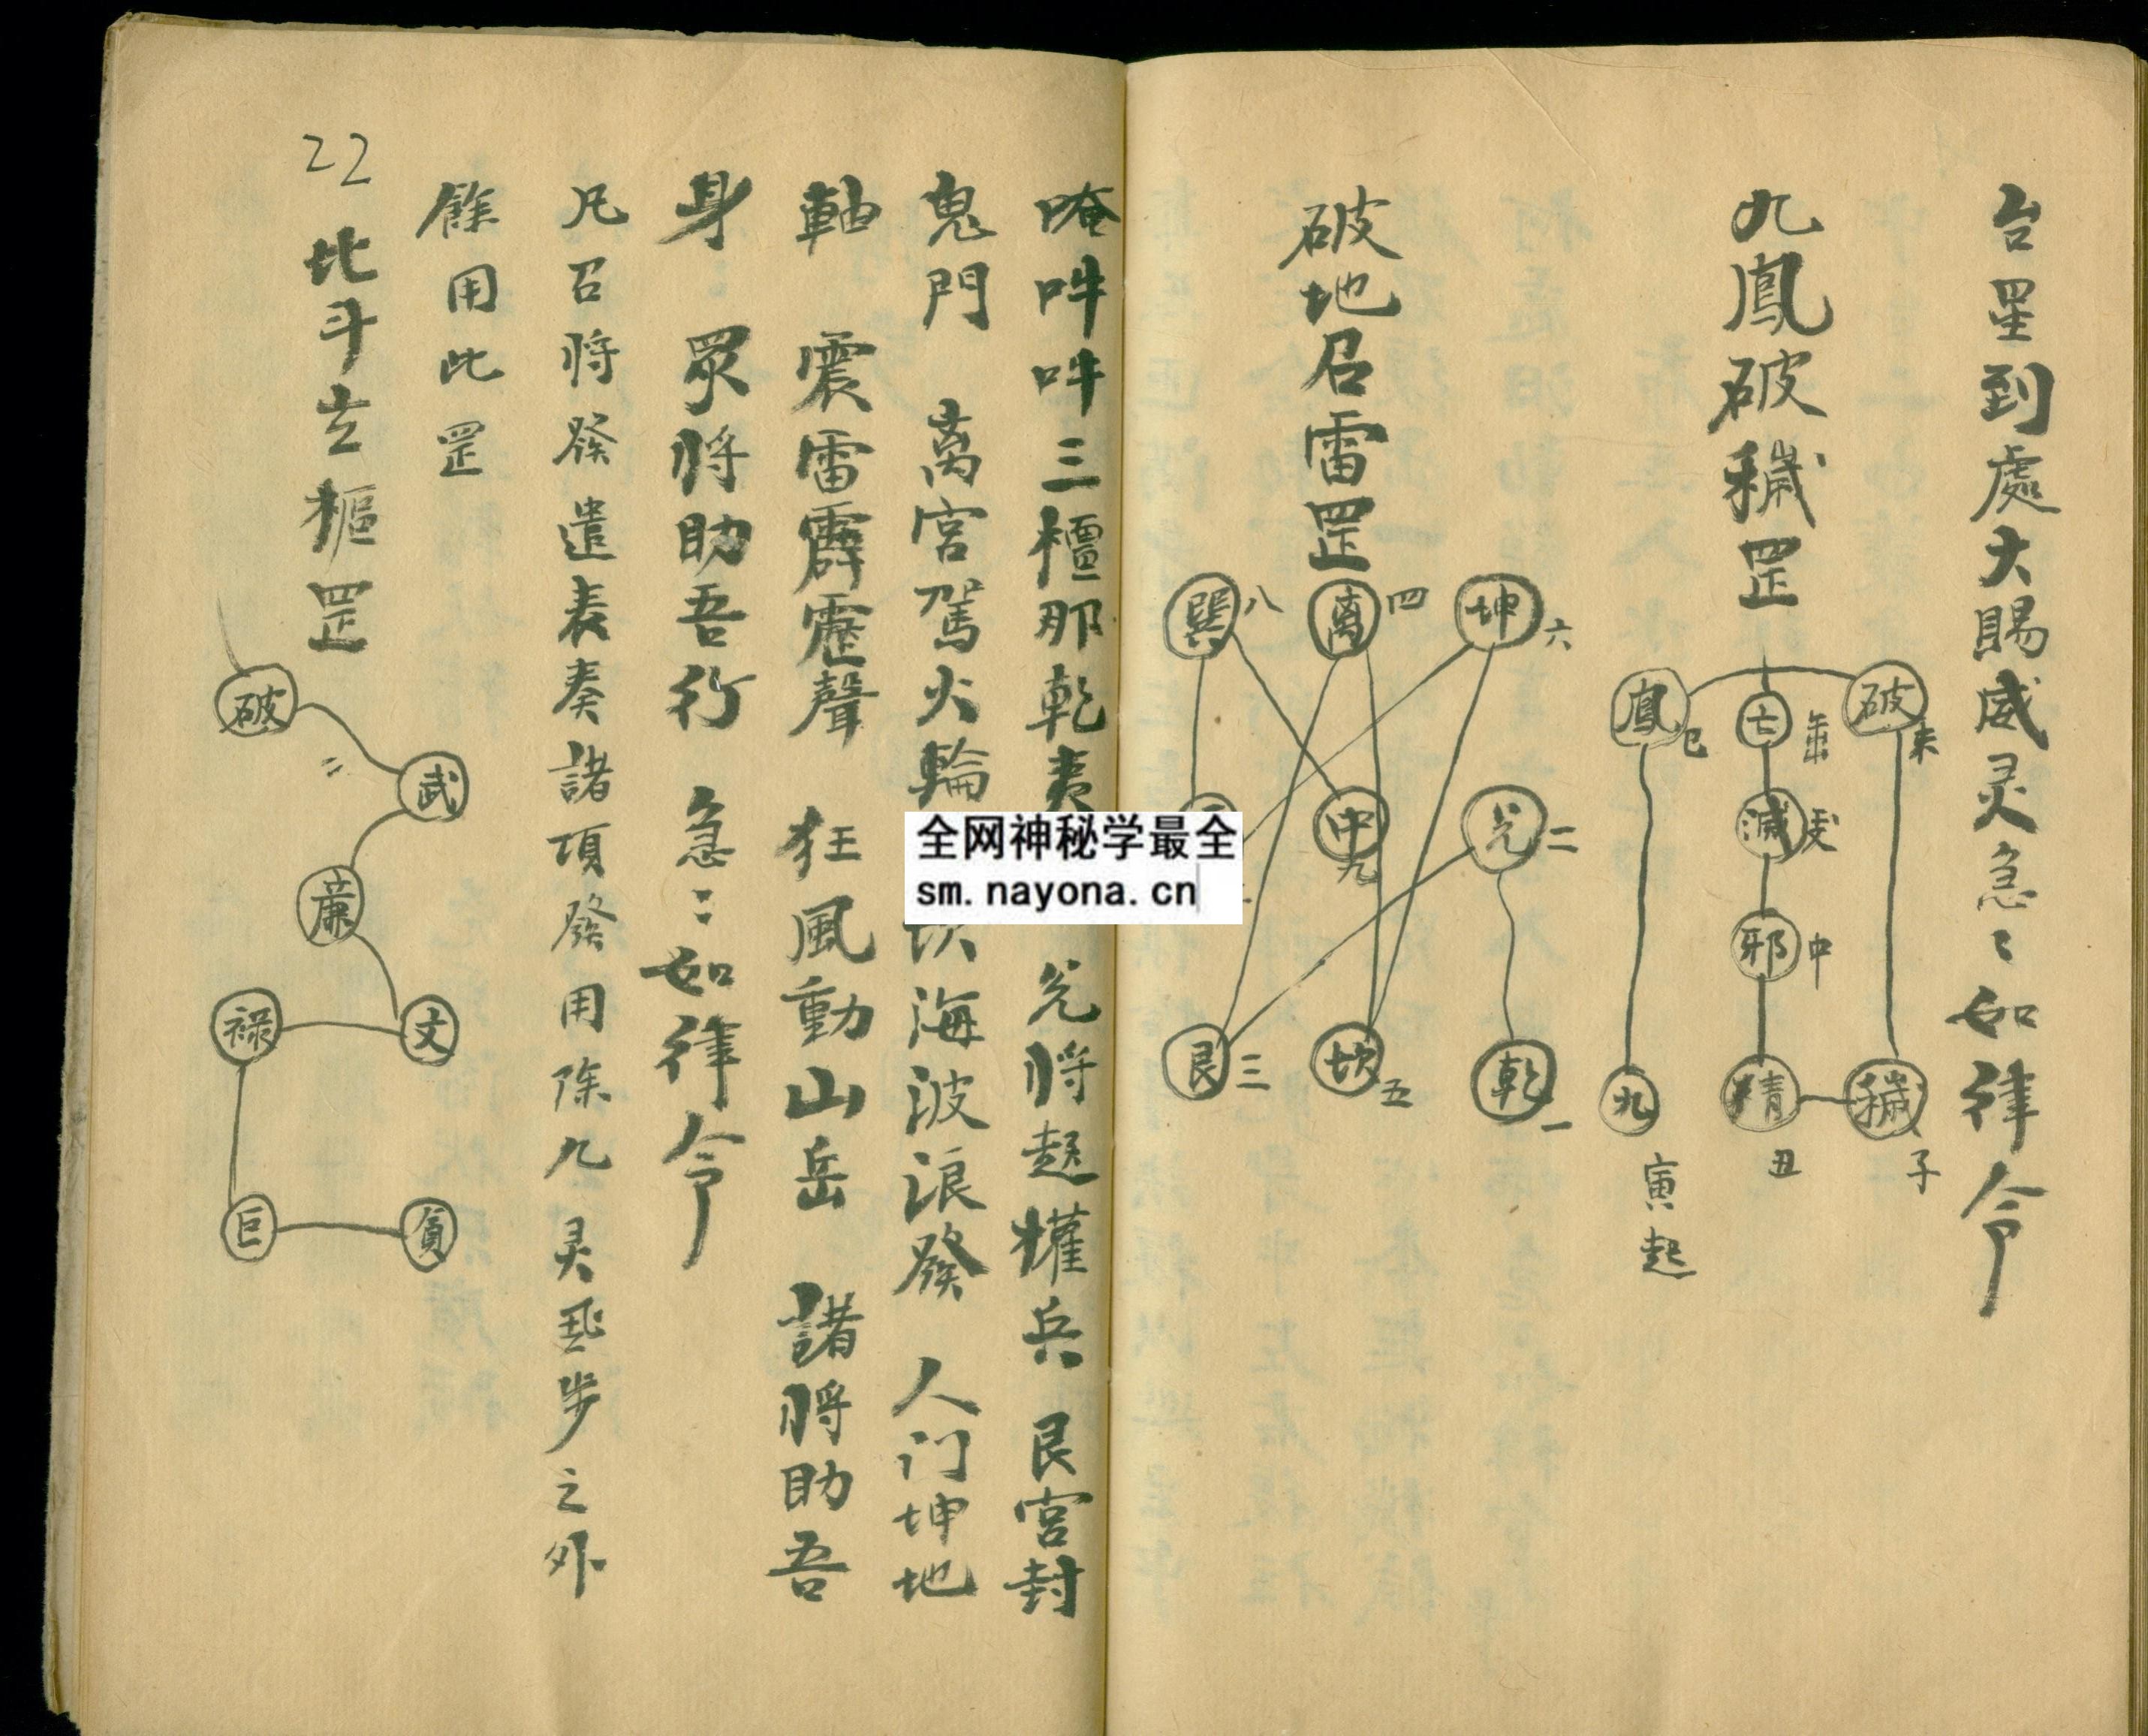 台星到處大賜威灵急〻如律令
九鳳破穢罡
鳳 巳
亡
破 未
滅
邪 中
九
精 丑
穢 子
寅起
破地召雷罡
巽 八
离 四
坤 六
中 九
兑 二
艮 三
坎 五
乾 一
唵吽吽三檀那乾夷 兑將起權兵 艮宮封
鬼門 离宮駕火輪 坎海波浪發 人门坤地
軸 震雷霹靂聲 狂風動山岳 諸將助吾
身 眾將助吾行 急〻如律令
凡召將發遣表奏諸項發用除九灵飛步之外
餘用此罡
22
北斗玄樞罡
破
武
廉
禄
文
巨
貪
全网神秘学最全
sm.nayona.cn